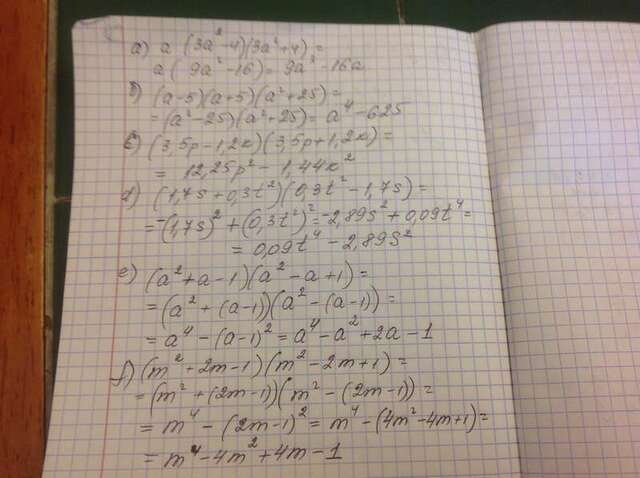 a) a (3a² - 4)(3a² + 4) =
a (9a² - 16) = 9a³ - 16a
б) (a - 5)(a + 5)(a² + 25) =
= (a² - 25)(a² + 25) = a⁴ - 625
в) (3,5p - 1,2к)(3,5p + 1,2к) =
= 12,25p² - 1,44к²
d) (1,7s + 0,3t²)(0,3t² - 1,7s) =
= -(1,7s)² + (0,3t²)² = -2,89s² + 0,09t⁴ =
= 0,09t⁴ - 2,89s²
e) (a² + a - 1)(a² - a + 1) =
= (a² + (a - 1))(a² - (a - 1)) =
= a⁴ - (a - 1)² = a⁴ - a² + 2a - 1
f) (m² + 2m - 1)(m² - 2m + 1) =
= (m² + (2m - 1))(m² - (2m - 1)) =
= m⁴ - (2m - 1)² = m⁴ - (4m² - 4m + 1) =
= m⁴ - 4m² + 4m - 1